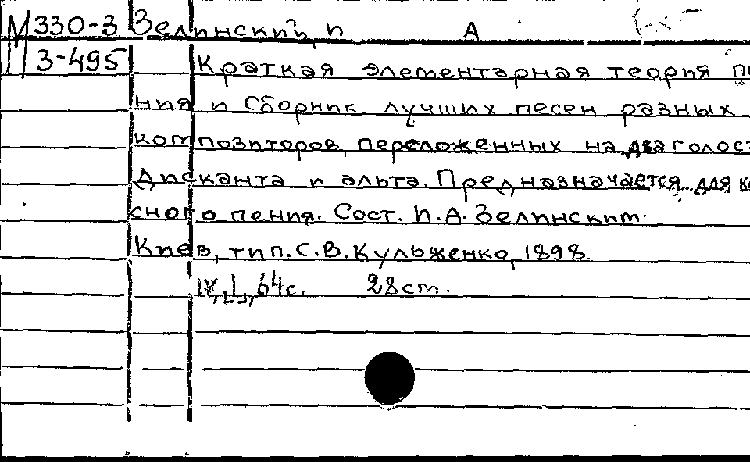 М330-3 Зелинский, И А
З-495 Краткая элементарная теория пе
ния и Сборник лучших песен разных
композиторов, переложенных на два голоса
Дисканта и альта. Предназначается для кл
сного пения. Сост. И.А. Зелинским.
Киев, тип. С.В. Кульженко, 1898
IV, 1, 64с. 28см.